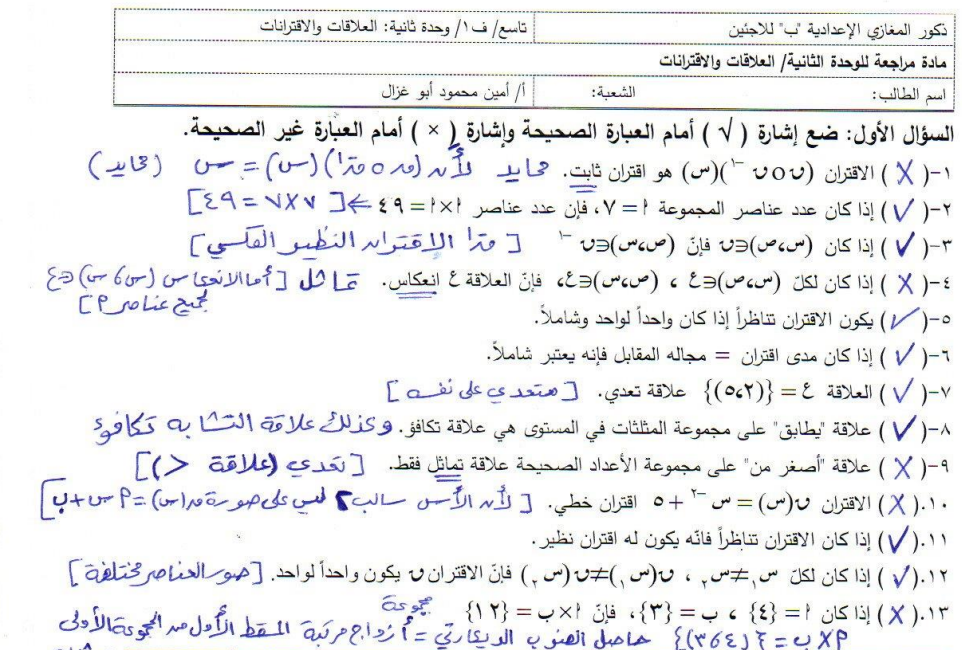 ذكور المغازي الإعدادية "ب" للاجئين تاسع/ ف ١/ وحدة ثانية: العلاقات والاقترانات
مادة مراجعة للوحدة الثانية/ العلاقات والاقترانات
اسم الطالب: الشعبة: أ/ أمين محمود أبو غزال
السؤال الأول: ضع إشارة ( √ ) أمام العبارة الصحيحة وإشارة ( × ) أمام العبارة غير الصحيحة.
١-( X ) الاقتران (ن o ن⁻¹)(س) هو اقتران ثابت. محايد لأن (ن o ن⁻¹)(س) = س (محايد)
٢-( √ ) إذا كان عدد عناصر المجموعة أ = ٧، فإن عدد عناصر أ×أ = ٤٩ ← [ ٧×٧ = ٤٩ ]
٣-( √ ) إذا كان (س،ص)∈ن فإنّ (ص،س)∈ن⁻¹ [ ن⁻¹ الإقتران النظير العكسي ]
٤-( X ) إذا كان لكلّ (س،ص)∈ع ، (ص،س)∈ع، فإنّ العلاقة ع انعكاس. تماثل [ أما الانعكاس (س،س)∈ع
لجميع عناصر أ ]
٥-( √ ) يكون الاقتران تناظراً إذا كان واحداً لواحد وشاملاً.
٦-( √ ) إذا كان مدى اقتران = مجاله المقابل فإنه يعتبر شاملاً.
٧-( √ ) العلاقة ع = {(٥،٢)} علاقة تعدي. [ متعدي على نفسه ]
٨-( √ ) علاقة "يطابق" على مجموعة المثلثات في المستوى هي علاقة تكافؤ. وكذلك علاقة التشابه تكافؤ
٩-( X ) علاقة "أصغر من" على مجموعة الأعداد الصحيحة علاقة تماثل فقط. [ تعدي (علاقة <) ]
١٠.( X ) الاقتران ن(س) = س⁻² + ٥ اقتران خطي. [ لأن الأس سالب٢ ليس على صورة ن(س) = أس + ب ]
١١.( √ ) إذا كان الاقتران تناظراً فانّه يكون له اقتران نظير.
١٢.( √ ) إذا كان لكلّ س₁≠س₂ ، ن(س₁)≠ن(س₂) فإنّ الاقتران ن يكون واحداً لواحد. [ صور العناصر مختلفة ]
١٣.( X ) إذا كان أ = {٤} ، ب = {٣}، فإنّ أ×ب = {١٢} مجموعة
أ×ب = {(٤،٣)} حاصل الضرب الديكارتي = أزواج مرتبة المسقط الأول من المجموعة الأولى